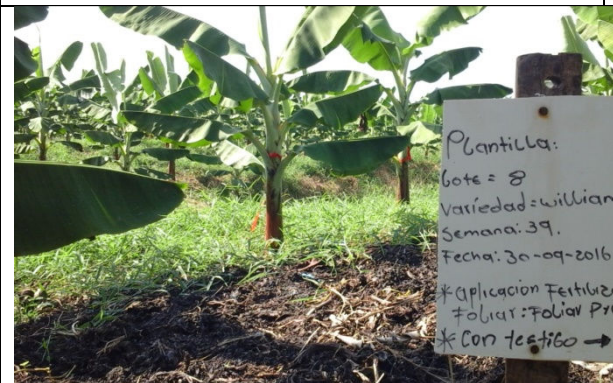 Plantilla:
Lote = 8
Variedad = William
Semana: 39.
Fecha: 30-09-2016
* Aplicacion Fertiliza
Foliar: Foliar Pro
* Con testigo →